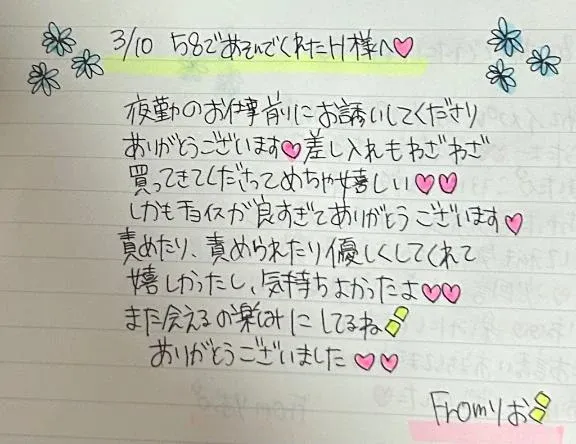 3/10 58であそんでくれたH様へ♡
夜勤のお仕事前にお誘いしてくださり
ありがとうございます♡差し入れもわざわざ
買ってきてくださってめちゃ嬉しい♡♡
しかもチョイスが良すぎてありがとうございます♡
責めたり、責められたり優しくしてくれて
嬉しかったし、気持ちよかったよ♡♡
また会えるの楽しみにしてるね
ありがとうございました♡♡
Fromりお